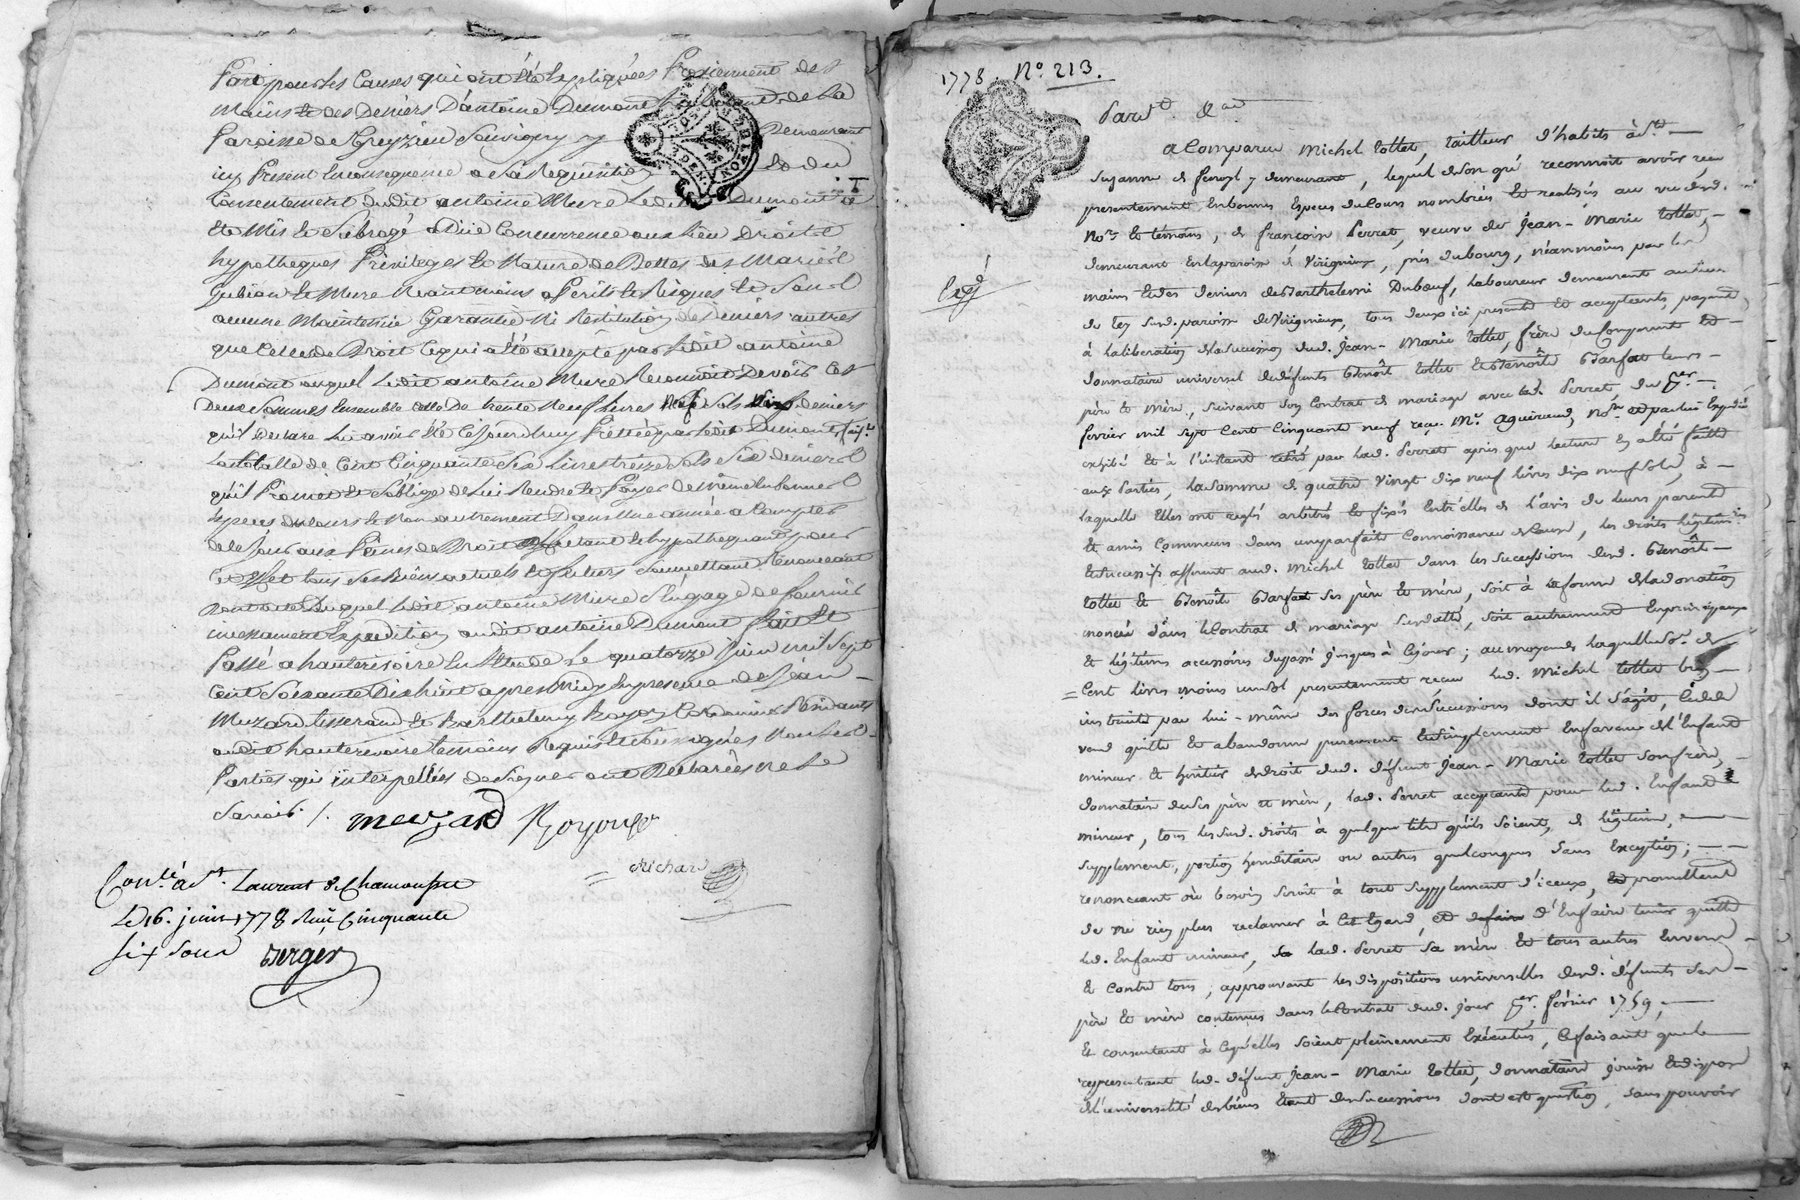 Paré pour les Causes qui ont été Expliquées Proviennent des
Mains et des Deniers D'antoine Dumont habitant de La
Paroisse de Grezieu Souvigny y Demeurant
icy Present En consequence de La Requisition Et du
Consentement dudit antoine Mure Ledit Dumont
Et Mis et Subrogé a Due Concurrence aux Lieu Droits
hypotheques Privileges et Nature de Dettes des Mariés
Gubian et Mure Neantmoins a Perils et Risques et Sans
aucune Maintenüe Garantie Ni Restitution de Deniers autres
que Celles de Droit Ce qui a été accepté par Ledit antoine
Dumont auquel Ledit antoine Mure Reconnoit Devoir Les
Deux Sommes Ensemble Celle De trente Neuf Livres Neuf Sols Deniers
qu'il Declare Lui avoir été Cejourd'huy Prêtée par Ledit Dumont fais.t
La totalle de Cent Cinquante Six Livres treize Sols Six Deniers
qu'il Promet et S'oblige de Lui Rendre et Payer De même En bonnes
Especes du Cours et Non autrement Dans Une année a Compter
de Ce Jour aux Peines de Droit affectant et hypothequant pour
Cet Effet tous Ses Biens actuels et futurs Soumettant Renonceant
Dont acte Duquel Ledit antoine Mure S'engage de fournir
incessament Expedition audit antoine Dumont fait Et
Passé a hauterivoire En l'Etude Le quatorze Juin mil Sept
Cent Soixante Dix huit apres Midy En presence de Jean
Muzard tisserand et Barthelemy Royon Cordonnier Residants
audit hauterivoire temoins Requis Et Soussignés Non Les
Parties qui interpellées de Signer ont Declarées Ne Le
Savoir /. meuzard Royon
Richard
Con.lé à St Laurent de Chamousset
Le 16. juin 1778 Reçu Cinquante
six sous Berger
1778. No. 213.
Pard.t &a
a Comparu Michel tottet, tailleur d'habits à Ste
Suzanne de y demeurant, lequel de son gré reconnoit avoir reçu
presentement En bonnes Especes du Cours nombrées et realisées au vu desd.
No.res Et témoins, de françoise Perret, veuve de Jean-Marie tottet,
demeurant En la paroisse de Virignieux, près du bourg, néanmoins par les
Céd.
mains et des deniers de Barthelemi Duboeuf, laboureur demeurant au lieu
du susd. paroisse de Virignieux, tous deux ici presents et acceptants, payant
à la liberation de la succession dud. Jean-Marie tottet, frère du Comparant et
donnataire universel de défunts Benoît tottet et Benoîte Barjat leurs
père Et mère, suivant son Contrat de mariage avec lad. Perret, du 1er
fevrier mil sept Cent Cinquante neuf reçu Me. aguiraud, No.re et par lui Expédié
exhibé et à l'instant retiré par lad. Perret après que lecture En a été faitte
aux Parties, la somme de quatre vingt dix neuf livres dix neuf sols, à
laquelle Elles ont reglé arbitré et fixé Entr'elles de l'avis de leurs parents
Et amis Communs dans une parfaite Connoissance de Cause, les droits légitim.res
et successifs afferent aud. Michel tottet dans les successions desd. Benoît
tottet Et Benoîte Barjat ses père Et mère, soit à la forme de la donation
énoncée dans le Contrat de mariage susdatté, soit autrement En principaux
et légitimes accessoires du passé jusques à Ce jour; au moyen de laquelle so.e de
Cent livres moins un sol presentement reçue led. Michel tottet bien
instruit par lui-même des forces des successions dont il s'agit, Cède
vend quitte Et abandonne purement Et simplement En faveur de l'Enfant
mineur Et heritier de droit dud. défunt Jean-Marie tottet son frère,
donnataire de ses père Et mère, lad. Perret acceptante pour led. Enfant
mineur, tous lesd. droits à quelque titre qu'ils soient, de légitime,
supplement, portion hereditaire ou autres quelconques sans Exception;
renonceant où besoin seroit à tout supplement d'iceux, promettant
de ne rien plus reclamer à Cet Egard, et d'En faire tenir quitte
led. Enfant mineur, lad. Perret sa mère Et tous autres Envers
Et contre tous; approuvant les dispositions universelles desd. défunts ses
père Et mère contenues dans le Contrat dud. jour 1er. février 1759,
Et consentant à Ce qu'elles soient pleinement Exécutées, Ce faisant que le
representant led. défunt Jean-Marie tottet, donnataire jouisse Et dispose
de l'universalité des biens Etant des successions dont est question, sans pouvoir